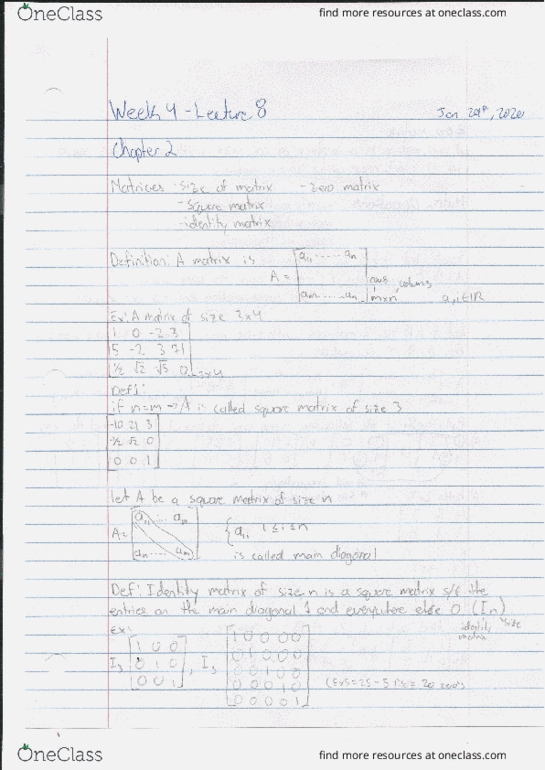 OneClass
find more resources at oneclass.com
Week 4 - Lecture 8
Jan 29th, 2020
Chapter 2
Matrices - size of matrix - zero matrix
- square matrix
- identity matrix
Definition: A matrix is A =
rows columns
m×n
Ex: A matrix of size 3x4
1 0 -2 3
5 -2 3 71
1/2 √2 √5 0 3x4
Def:
if n=m → A is called square matrix of size 3
-10 21 3
-1/2 √2 0
0 0 1
let A be a square matrix of size n
A=
1≤i≤n
is called main diagonal
Def: Identity matrix of size n is a square matrix s/t the
entries on the main diagonal 1 and everywhere else 0 (In)
identity matrix size
Ex:
I3 1 0 0
0 1 0
0 0 1
, I5 1 0 0 0 0
0 1 0 0 0
0 0 1 0 0
0 0 0 1 0
0 0 0 0 1
OneClass
find more resources at oneclass.com